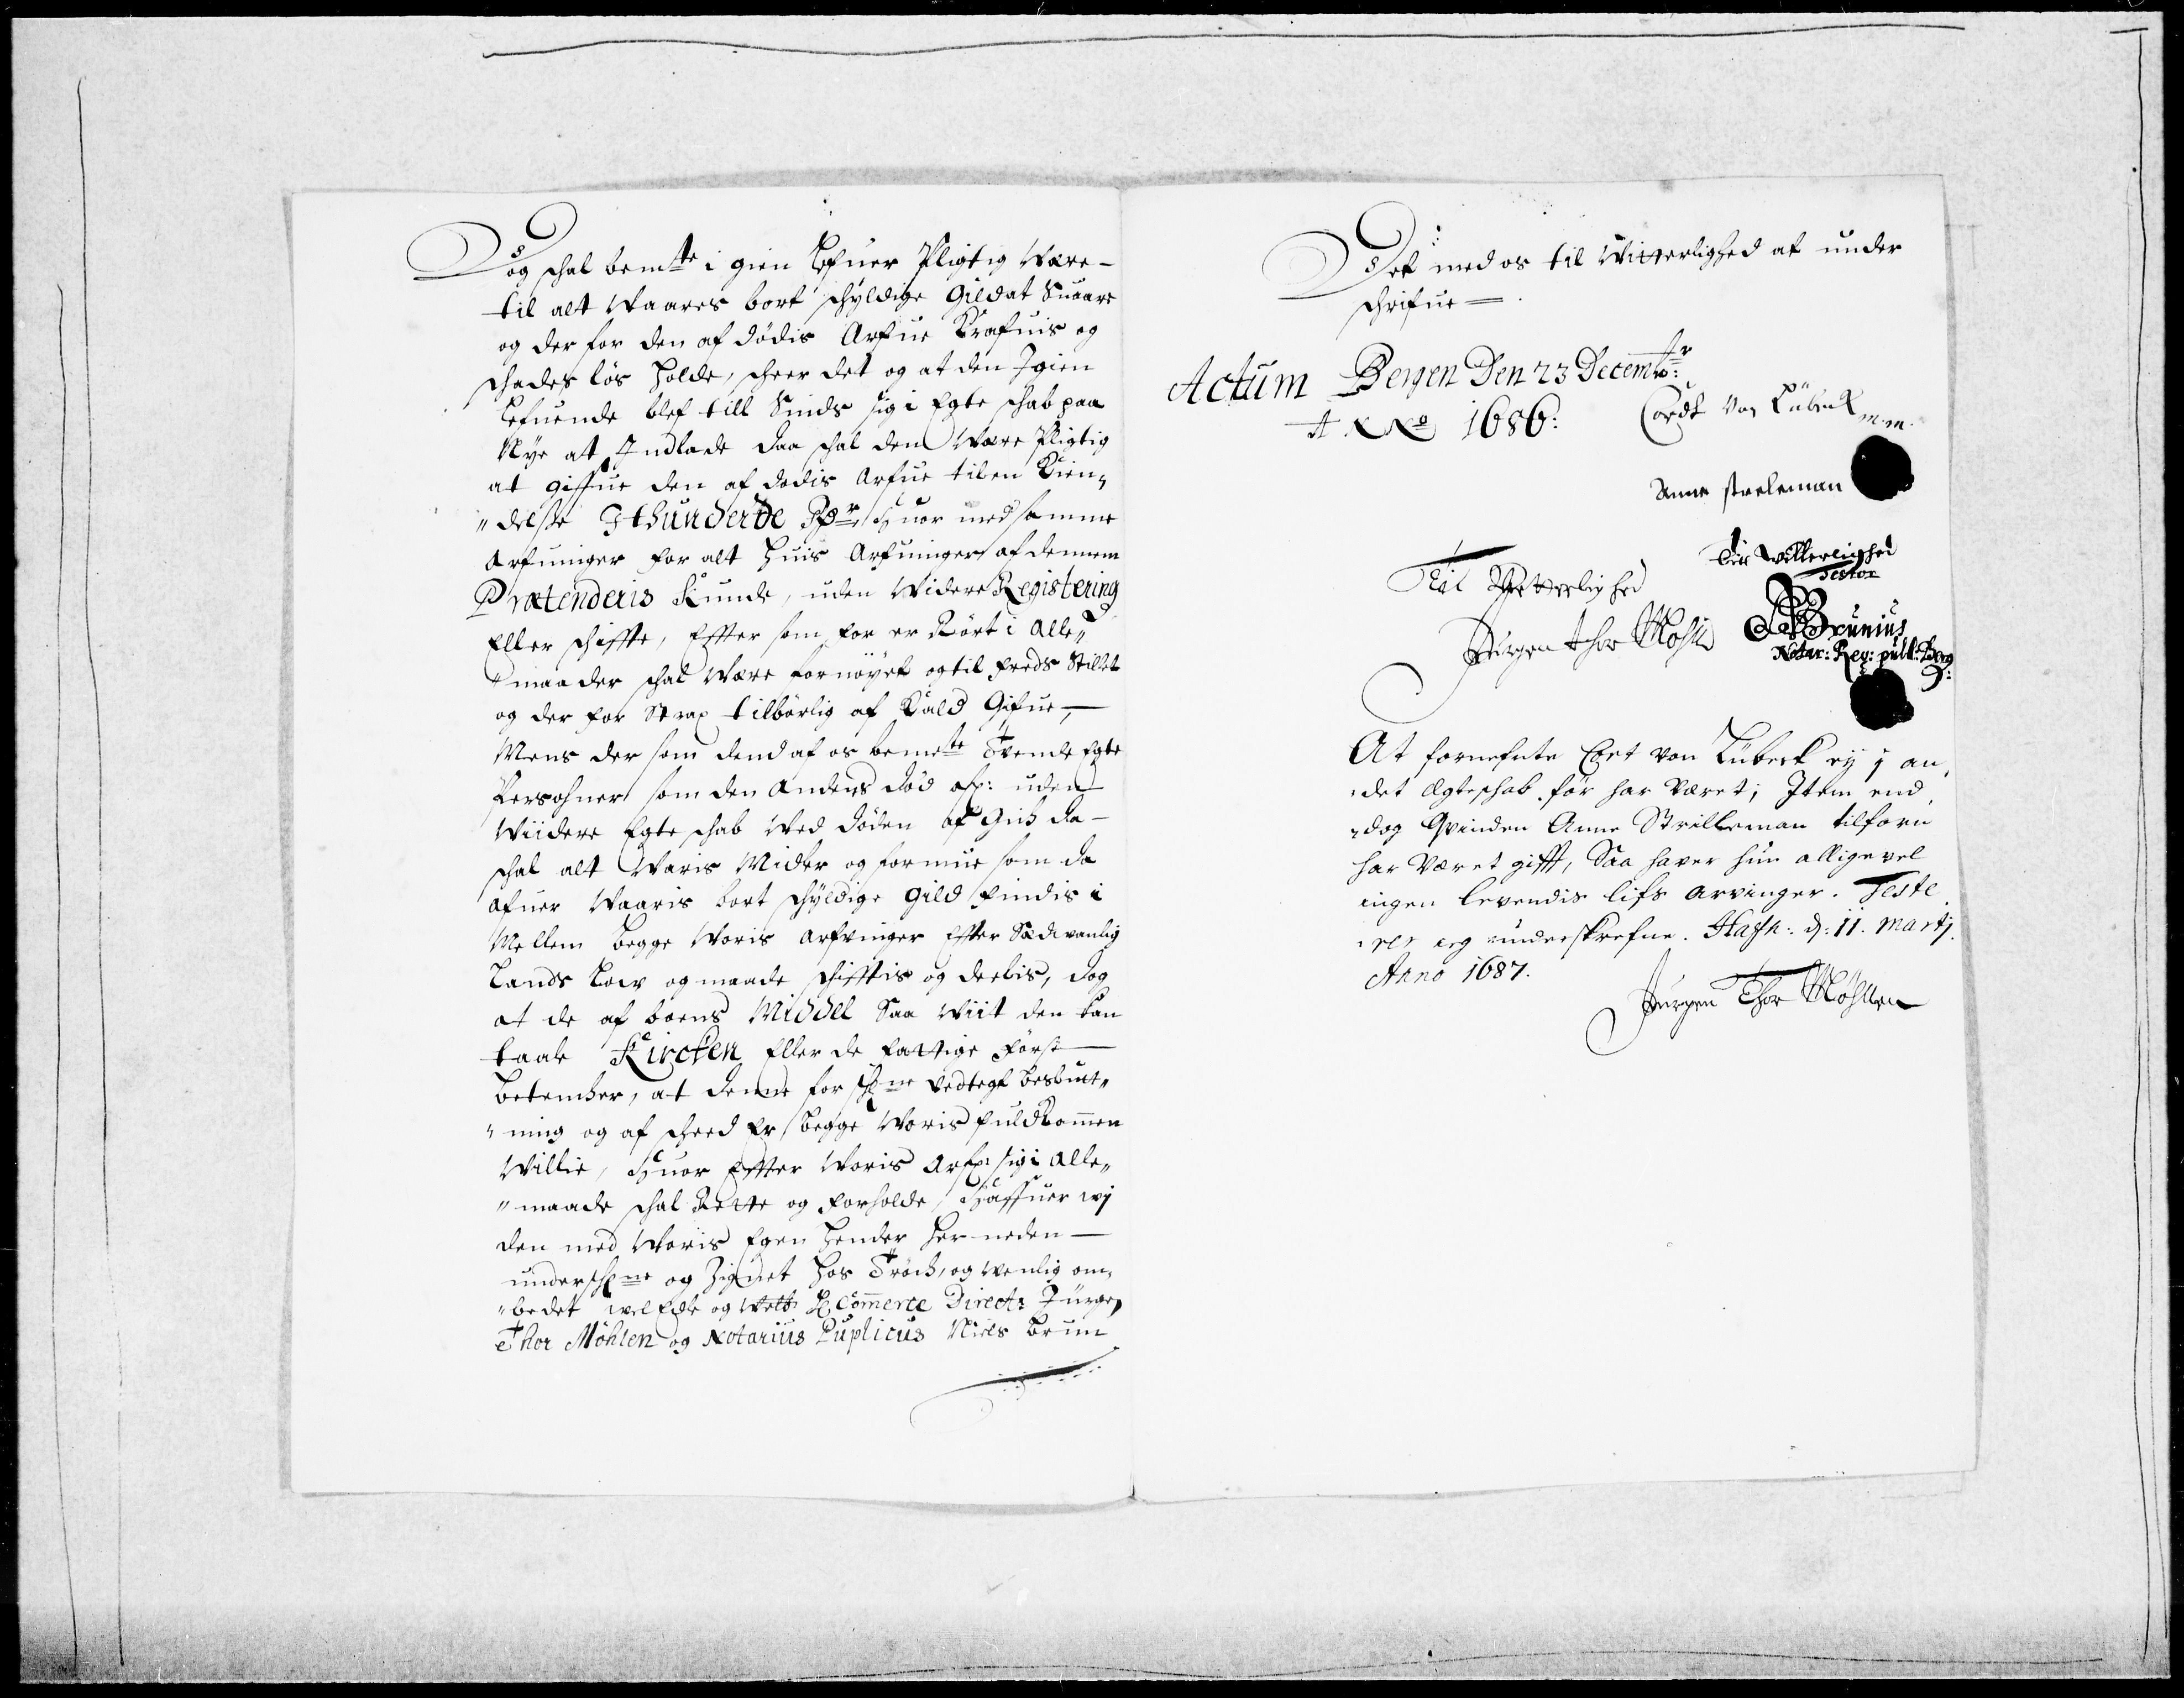 Dog schal bemte i gien Lefuer Pligtig Være
til alt Vaares bort schyldige Gild at Suaare
og der for den af dødis Arfue Krafuis og
schades løs holde, scheer det og at den Igien
Lefuende blef till Sinds sig i Egte schab paa
Nye at Indlade daa schal den Være Pligtig
at giffue den af dødis Arfue til en Kien„
„delse Ithunderde Rdr, huor med samme
Arfuinger for alt huis Arfuinger af dennem
Prætenderis Kunde, uden Videre Registering
Eller schiffte, Effter som for er Rørt i Alle„
„maader schal Være fornøyet og til freds Stillet
og der for Strax tilbørlig af Kald Gifue,
Mens der som dend af os bemte Tvende Egte
Persohner som den Andens død afp: uden
Viidere Egteschab Ved døden af gich da
schal alt Voris Midler og formue som da
ofuer Vaaris bort schyldige Gild findis i
Mellem begge Voris Arfvinger Effter Sædvanlig
Lands Low og maade schifftis og deelis, dog
at de af boens Middel Saa Viit den kan
taale Kircken Eller de fattige først
betencker, at denne for schne vedtegt beslut„
„ning og af scheed Er begge Voris fuldkommen
Villie, huor Effter Voris Arfp: sig i Alle„
„maade schal Rette og forholde, haffuer wj
den med Voris Egen hender her neden
underschne og Zignet hos Tröch, og venlig om„
„bedet wel Edle og Welb Hr Commerce Directr Jürgen
Thor Möhlen og Notarius Puplicus Niels Brun
Det med os til Vitterlighed at under
schrifue
Actum Bergen Den 23 Decembr
ANNo 1686:
Cordt Von Lübeck m.m.
Anne streleman
Til Vetterlighed
Jürgen thor Møhlen
Til Vitterlighed
Testor
NBrunius
Notar: Reg: publ: Berg:
At fornefnte Cort von Lübeck ey j an„
„det Ægteschab før har Været; Item end„
„dog Qvinden Anne Strilleman tilforn
har Været gifft, Saa haver hun alligevel
ingen levendis lifs arvinger. Teste„
„rer ieg underskrefne. Hafn: d: 11. Martj.
Anno 1687.
Jürgen Thor Möhlen